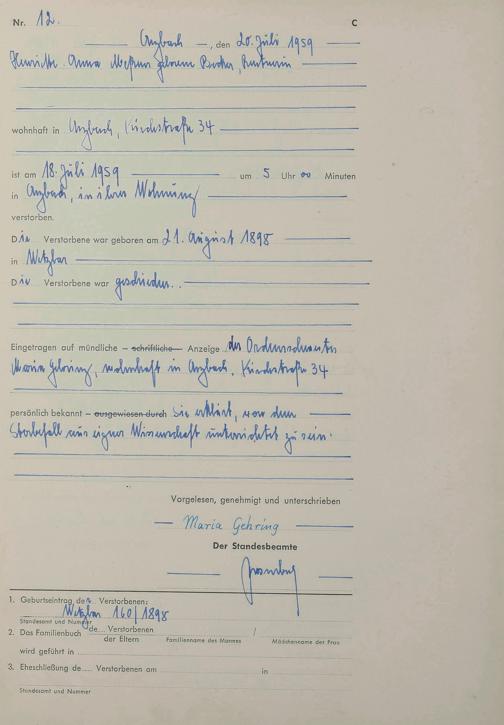 Nr. 12. C
Arzbach, den 20. Juli 1959
Henriette Anna geborene Becker, Rentnerin
wohnhaft in Arzbach, Kirchstraße 34
ist am 18. Juli 1959 um 5 Uhr 00 Minuten
in Arzbach, in ihrer Wohnung
verstorben.
Die Verstorbene war geboren am 21. August 1898
in Wetzlar
Die Verstorbene war geschieden.
Eingetragen auf mündliche – schriftliche – Anzeige der Ordensschwester
Maria Gehring, wohnhaft in Arzbach, Kirchstraße 34
persönlich bekannt – ausgewiesen durch Sie erklärt, von dem
Sterbefall aus eigner Wissenschaft unterrichtet zu sein.
Vorgelesen, genehmigt und unterschrieben
Maria Gehring
Der Standesbeamte
1. Geburtseintrag der Verstorbenen:
Wetzlar 160/1898
Standesamt und Nummer
2. Das Familienbuch de... Verstorbenen /
der Eltern Familienname des Mannes Mädchenname der Frau
wird geführt in
3. Eheschließung de... Verstorbenen am in
Standesamt und Nummer